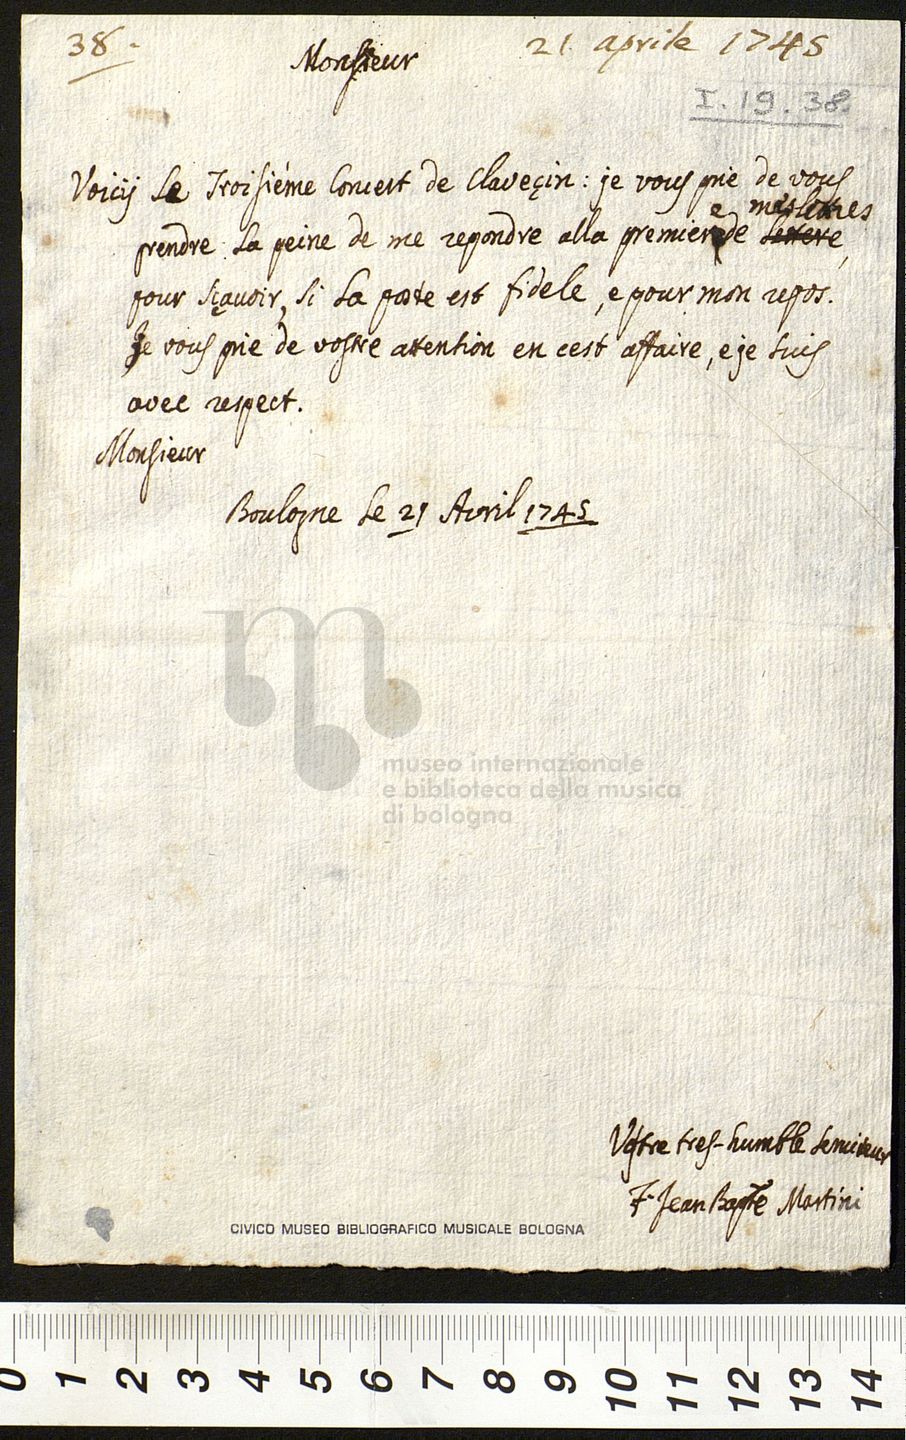 38.
21 aprile 1745
Monsieur
I.19.38.
Voicij Le Troisiéme Concert de Claveçin: je vous prie de vous
prendre La peine de me repondre alla premiere de mes lettres
pour sçavoir, si La poste est fidele, e pour mon repos.
Je vous prie de vostre attention en cest affaire, e je suis
avec respect.
Monsieur
Boulogne Le 21 Avril 1745
museo internazionale
e biblioteca della musica
di bologna
Vostre tres-humble serviteur
F. Jean Bapte Martini
CIVICO MUSEO BIBLIOGRAFICO MUSICALE BOLOGNA
0 1 2 3 4 5 6 7 8 9 10 11 12 13 14